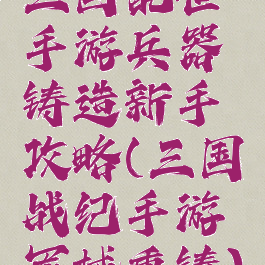 三国
手游兵器
铸造新手
攻略(三国
战纪手游
重铸)